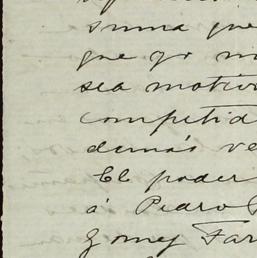 suma que
que yo no
sea motivo
competid
demás ve
El poder
á Pedro
Gomez Far